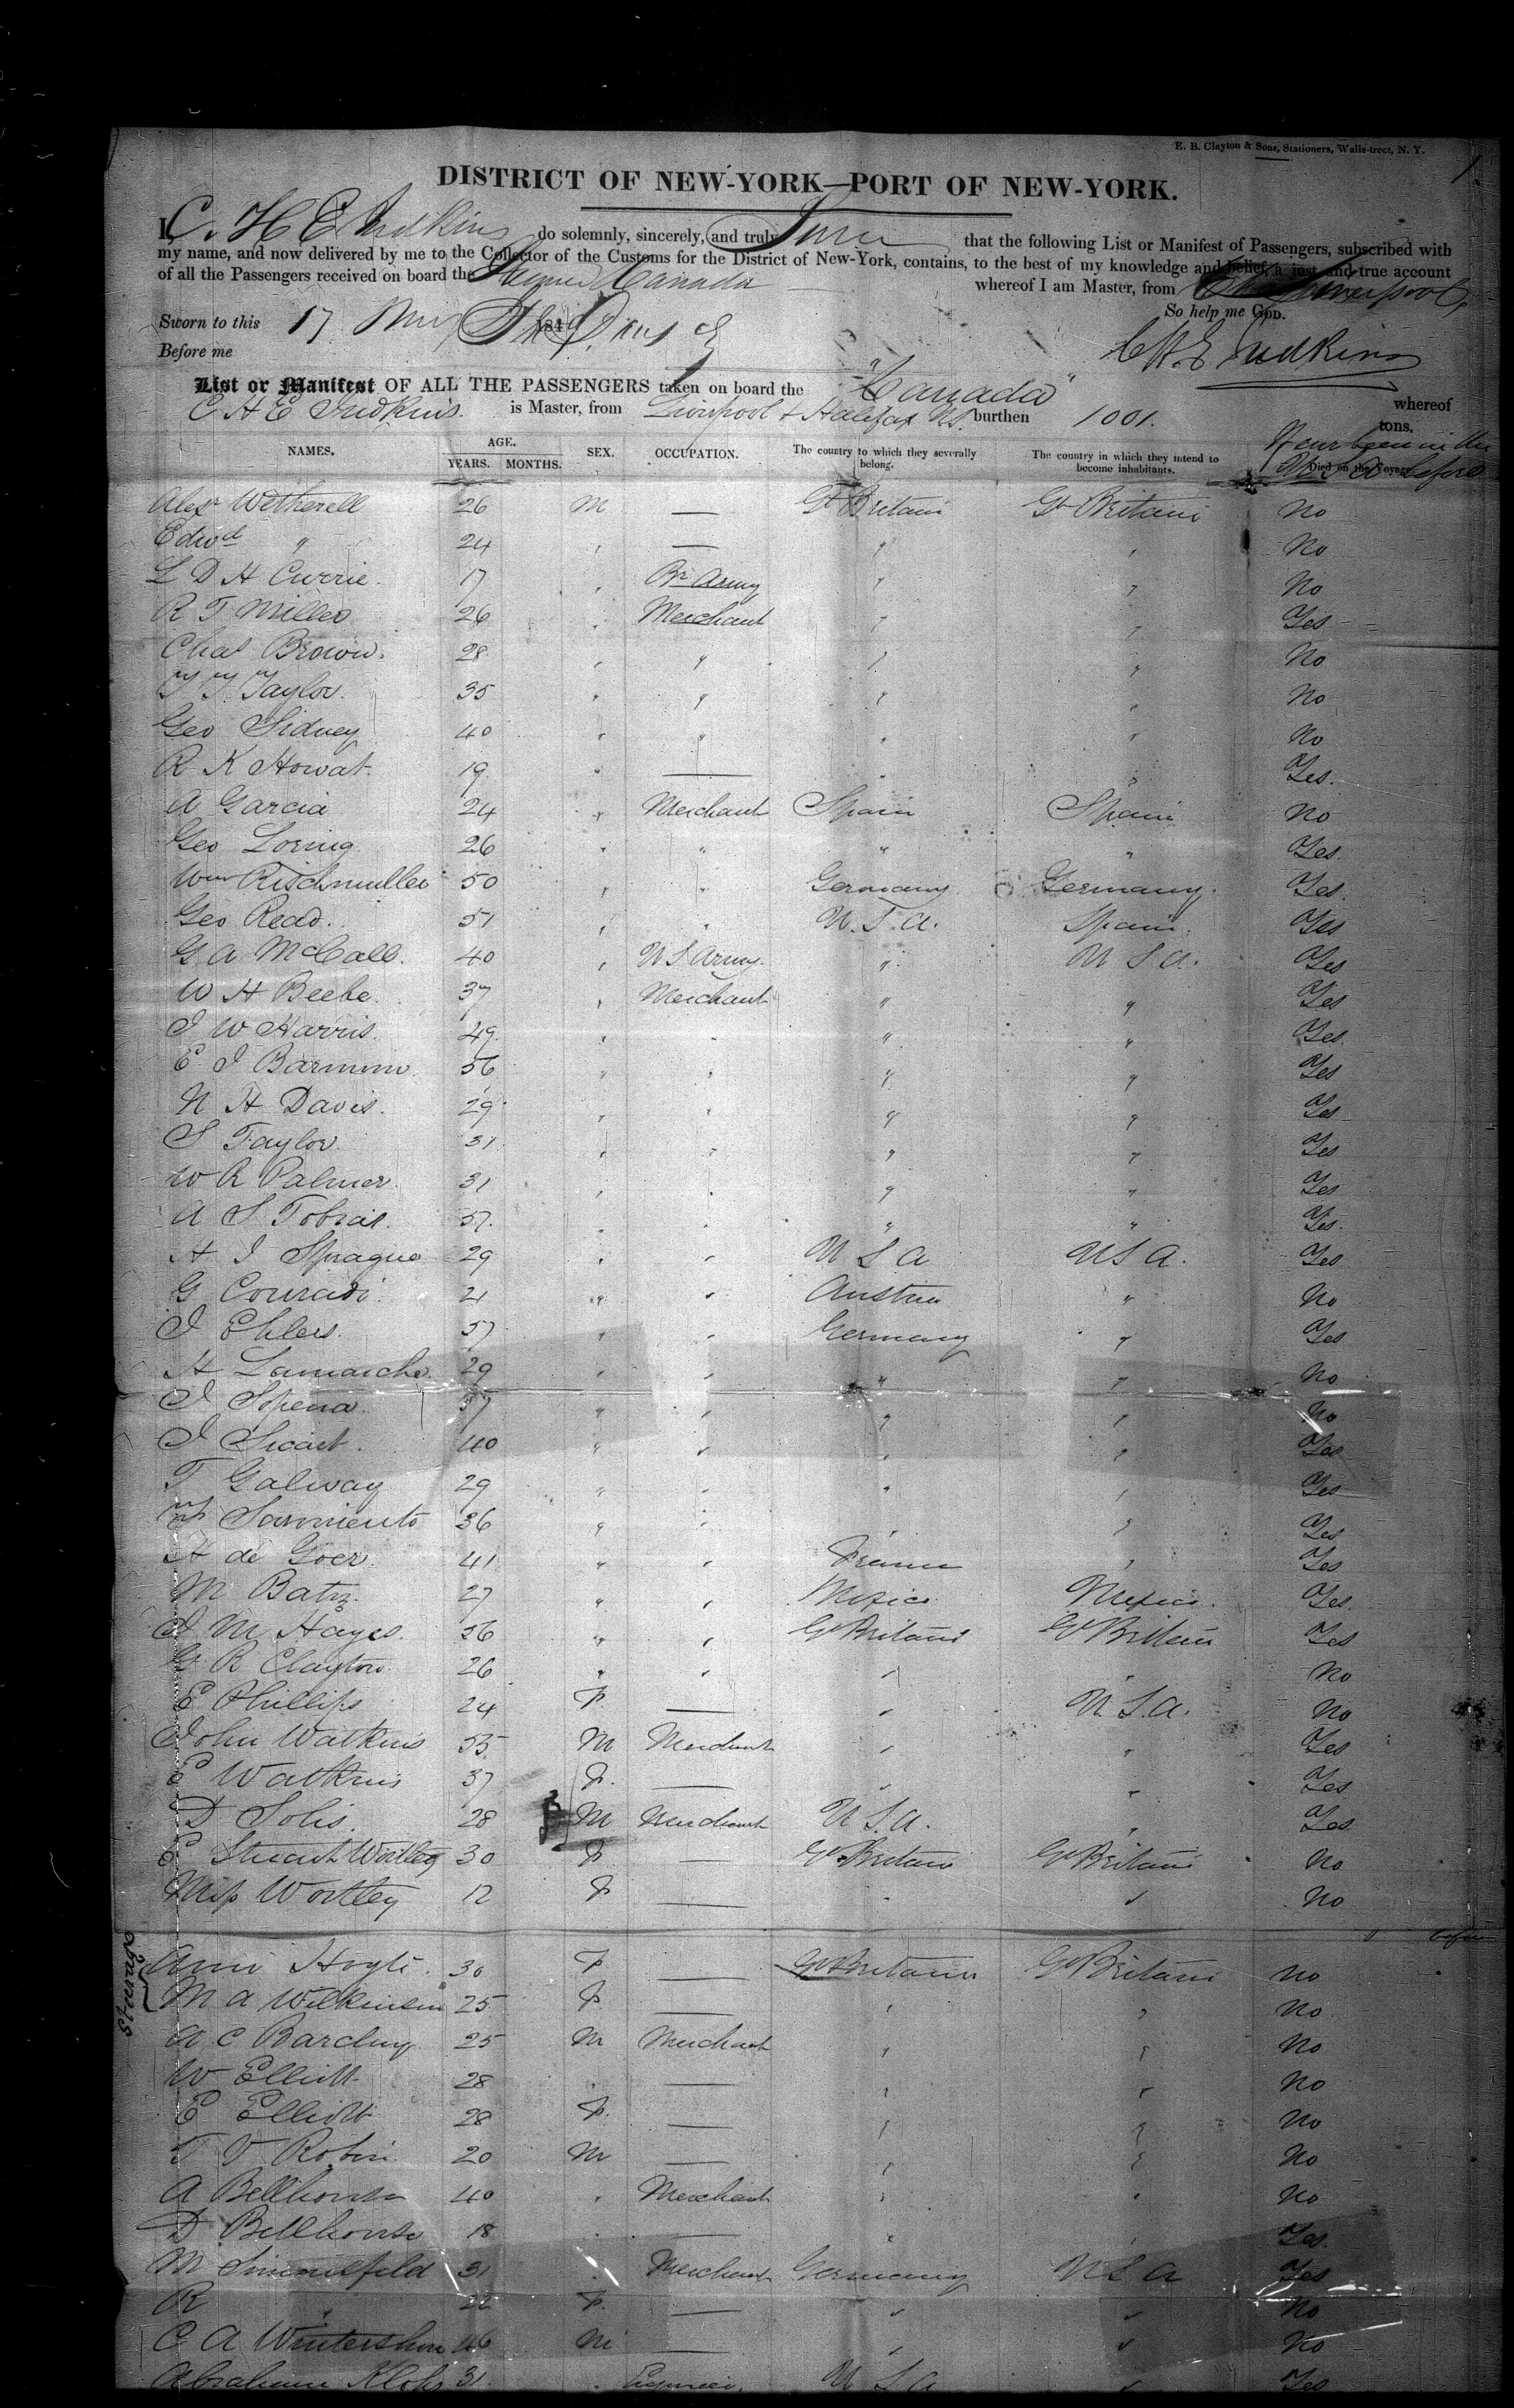 E. B. Clayton & Sons, Stationers, Wall-street, N. Y.
1
DISTRICT OF NEW-YORK—PORT OF NEW-YORK.
I, C. H. E. Judkins do solemnly, sincerely, and truly Swear that the following List or Manifest of Passengers, subscribed with
my name, and now delivered by me to the Collector of the Customs for the District of New-York, contains, to the best of my knowledge and belief, a just and true account
of all the Passengers received on board the Steamer Canada whereof I am Master, from Liverpool,
So help me GOD.
Sworn to this 17
Before me
C H E Judkins
List or Manifest OF ALL THE PASSENGERS taken on board the "Canada" whereof
C H E Judkins. is Master, from Liverpool & Halifax NS. burthen 1001. tons.
NAMES. AGE. YEARS. MONTHS. SEX. OCCUPATION. The country to which they severally belong. The country in which they intend to become inhabitants. Died on the Voyage.
Alexr Wetherell 26 M — Gt Britain Gt Britain No
Edwd " 24 " — " " No
L D H Currie. 17 " Br Army " " No
R T Miller 26 " Merchant " " Yes
Chas Brown. 28 " " " " No
T T. Taylor. 35 " " " " No
Geo Sidney 40 " " " " No
R K Howat 19 " — " " Yes.
A Garcia 24 " Merchant Spain Spain No
Geo Loring 26 " " " " Yes.
Wm Rischmuller 50 " " Germany Germany. Yes.
Geo Read. 51 " " U.S.A. Spain. Yes
G A McCall. 40 " U S Army. " U S A. Yes
W H Beebe. 37 " Merchant " " Yes
J W Harris. 49. " " " " Yes.
E J 56 " " " " Yes
N H Davis. 29 " " " " Yes
S Taylor. 31. " " " " Yes
W R Palmer. 31 " " " " Yes
A S Tobias. 57. " " " " Yes.
H J Sprague 29 " " U S A U S A. Yes
G Conradi. 21 " " Austria " No
J Ehlers. 57 " " Germany " Yes
H Lamarche. 29 " " " " No
J Sopena 37 " " " " No
J Sicart. 40 " " " " Yes
T Galway 29 " " " " Yes
F Sarmiento 36 " " " " Yes
H de Goer 41 " " France " Yes
M Batiz. 27 " " Mexico Mexico. Yes.
J M Hayes. 36 " " Gt Britain Gt Britain Yes
G R Clayton 26 " " " " No
E Phillips 24 F — " U S.A. No
John Watkins 55 M Merchant " " Yes
E Watkins 37 F. — " " Yes
D Solis. 28 M Merchant U S.A. " Yes
E Stuart Wortley 30 F — Gt Britain Gt Britain No
Miss Wortley 12 F — " " No
Servants
Ann 30 F — Gt Britain Gt Britain No
M A Wilkinson 25 F. — " " No
A C Barclay 25 M Merchant " " No
W Elliott 28 " — " " No
E Elliott 28 F. — " " No
T V Robin 20 M — " " No
A Bellhouse 40 " Merchant " " No
D Bellhouse 18 " — " " Yes.
M 31 " Merchant Germany U S A Yes
R " 22 F. — " " No
C A 46 M — " " No
Abraham 31 " Engineer. U S A " Yes